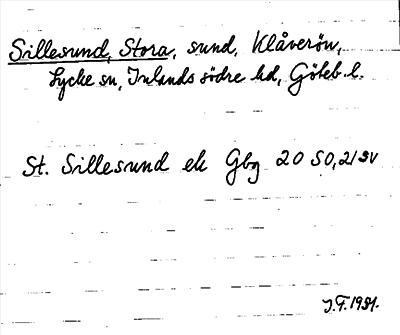 Sillesund, Stora, sund, Klåverön,
Lycke sn, Inlands södre hd, Göteb. l.
St. Sillesund ek Gbg 20 SO, 21 SV
J.F. 1931.